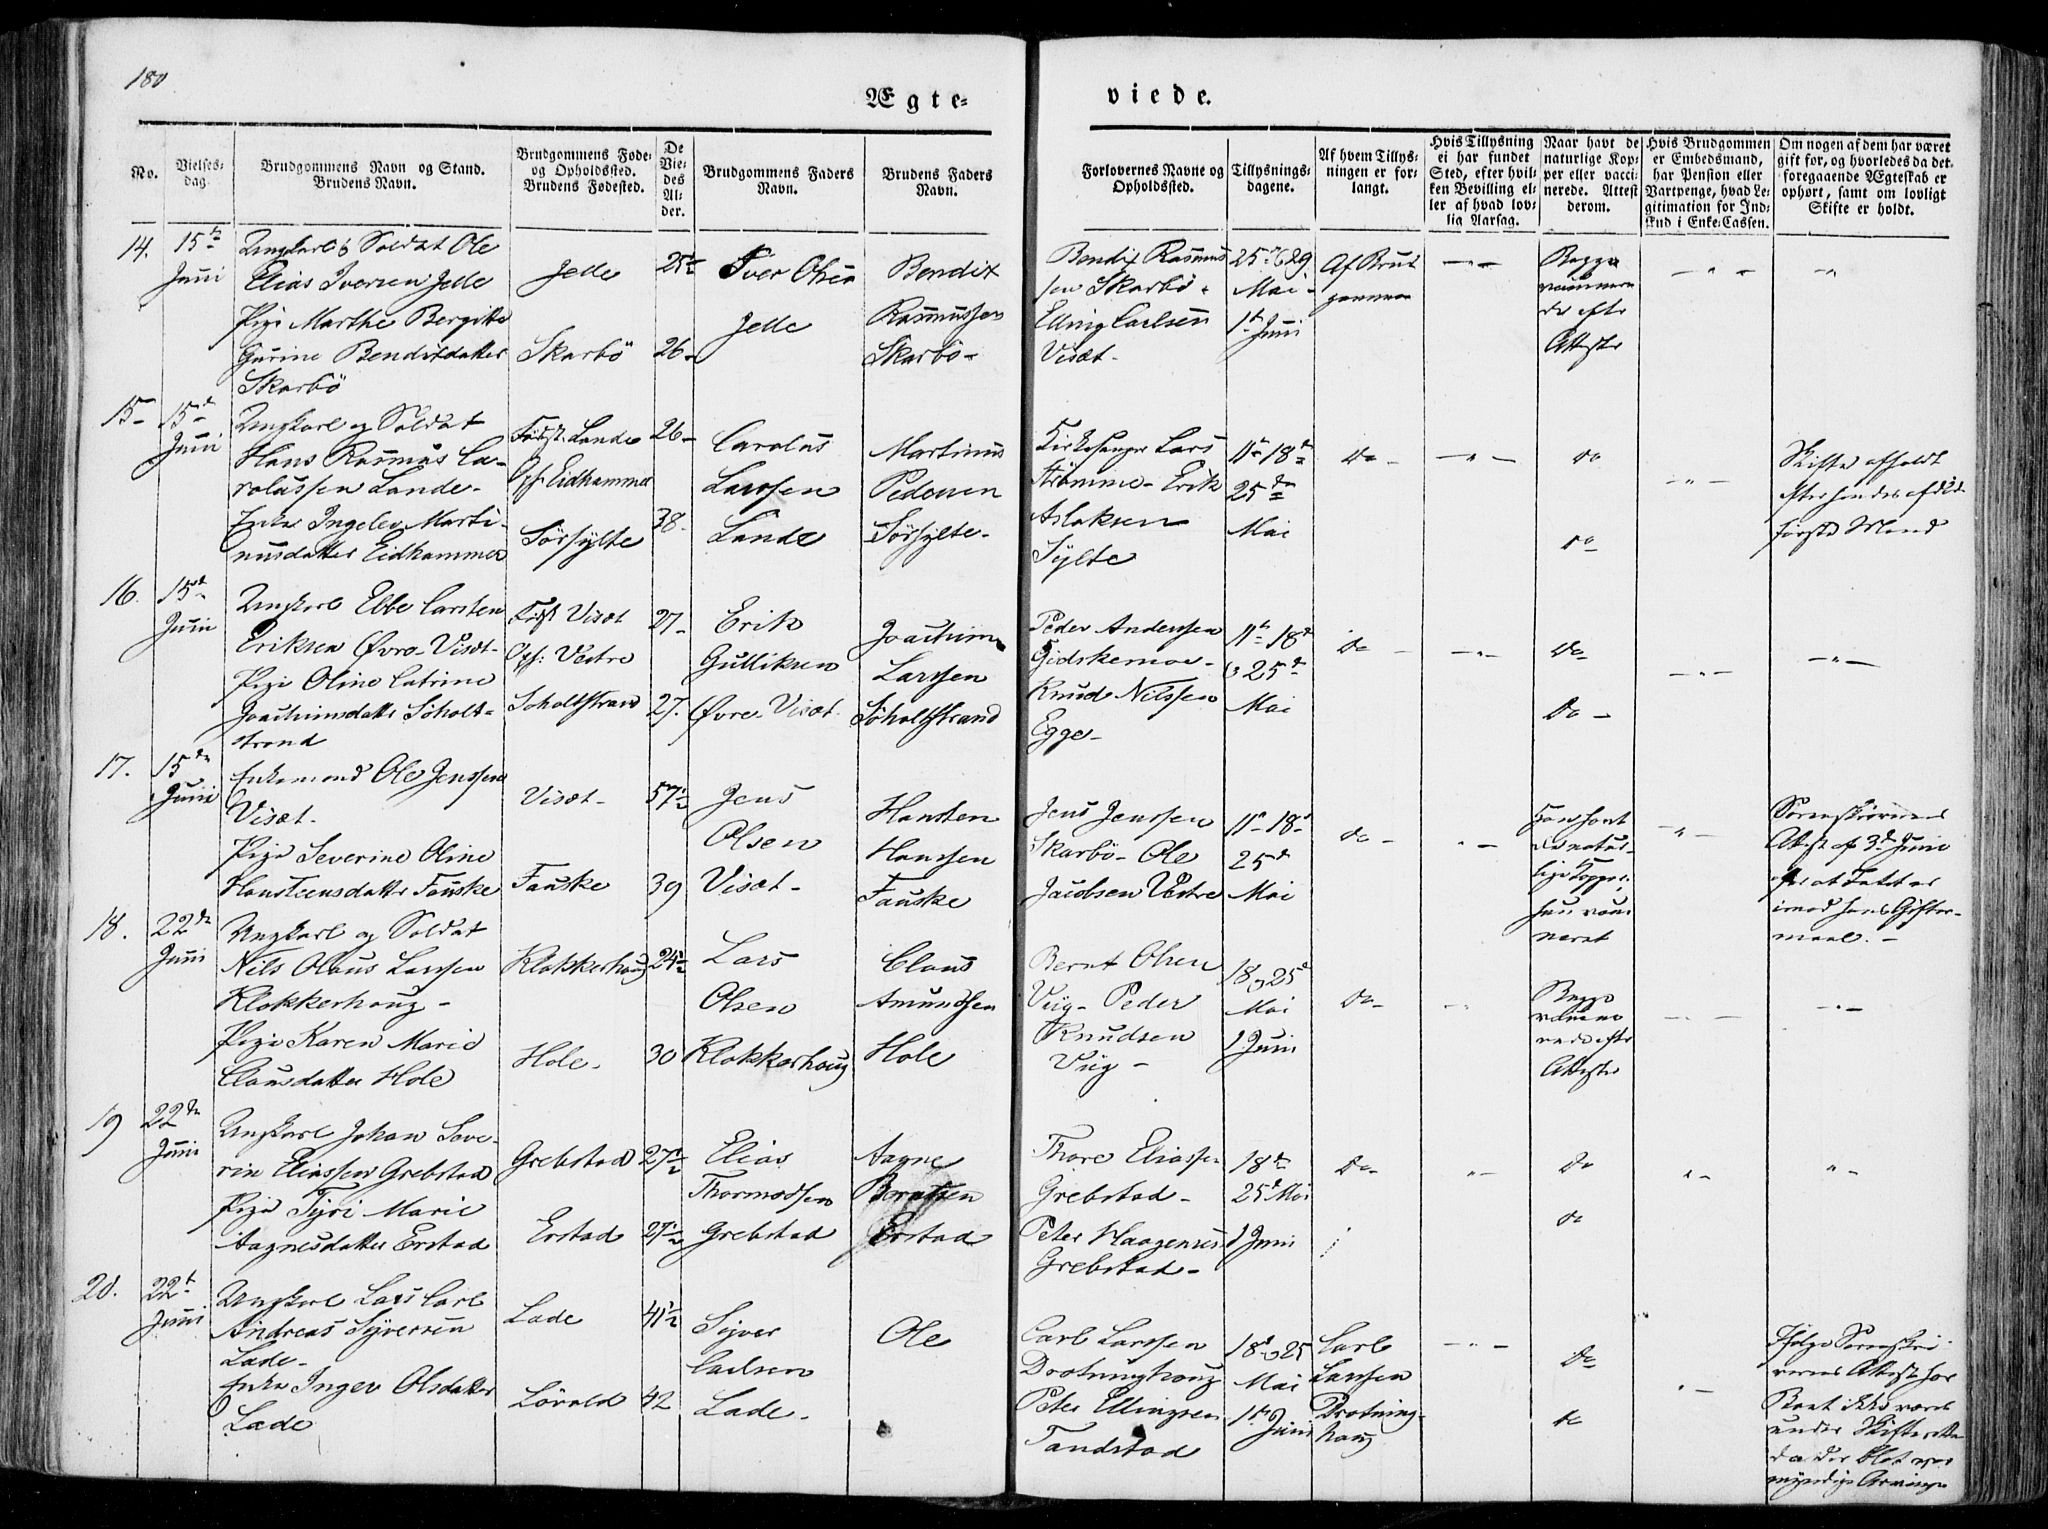 180
Ægte-
viede.
No.
Vielses-
dag.
Brudgommens Navn og Stand.
Brudens Navn.
Brudgommens Føde-
og Opholdssted.
Brudens Fødested.
De
Vie-
des
Al-
der.
Brudgommens Faders
Navn.
Brudens Faders
Navn.
Forlovernes Navne og
Opholdssted.
Tillysnings-
dagene.
Af hvem Tillys-
ningen er for-
langt.
Hvis Tillysning
ei har fundet
Sted, efter hvil-
ken Bevilling el-
ler af hvad lov-
lig Aarsag.
Naar havt de
naturlige Kop-
per eller vacci-
nerede. Attest
derom.
Hvis Brudgommen
er Embedsmand,
har Pension eller
Vartpenge, hvad Le-
gitimation for Ind-
skud i Enke-Cassen.
Om nogen af dem har været
gift før, og hvorledes da det
foregaaende Ægteskab er
ophørt, samt om lovligt
Skifte er holdt.
14.
15de
Juni
Ungkarl og Soldat Ole
Elias Iversen Jelle
Pige Marthe Bergitte
Gurine Bendixdatter
Skarbö
Jelle
Skarbö
25½
26-
Iver Olsen
Jelle
Bendix
Rasmussen
Skarbö-
Bendix Rasmus
sen Skarbö.
Elling Carlsen
Visæt-
25 og 29
Mai-
1ste Juni
Af Brud
gommen
Begge
vaccinere
de efter
Attester
15-
15de
Juni
Ungkarl og Soldat
Hans Rasmus Ca-
rolussen Lande-
Enke Ingelev Marti-
nusdatter Eidhammer
Födst: Lande
Opf: Eidhammer
Sörsylte
26-
38-
Carolus
Larssen
Lande
Martinus
Pedersen
Sörsylte-
Kirkesanger Lars
Strömme- Erik
Aslaksen
Sylte
11te 18de
25de
Mai
do -
do
do
Skifte afholdt
efter hendes afdöde
förste Mand
16.
15de
Juni
Ungkarl Ebbe Carsten
Eriksen Øvre-Visæt-
Pige Oline Catrine
Joachimsdatter Söholt-
strand
Födst Visæt
Opf: Vestre
Söholtstrand
27-
27.
Erik
Gulliksen
Øvre-Visæt
Joachim
Larssen
Söholtstrand
Peder Anderssen
Gidskemoe-
Knud Nilssen
Egge-
11te 18de
og 25de
Mai
do -
do
do -
17.
15de
Juni
Enkemand Ole Jenssen
Visæt-
Pige Severine Oline
Hansteensdatter Fauske
Visæt-
Fauske
57½
39
Jens
Olsen
Visæt-
Hansten
Hanssen
Fauske
Jens Jenssen
Skarbö- Ole
Jacobsen Vestre
11te 18de
25de
Mai
do -
Han havt
de natur-
lige Kopper;
hun vacci
neret
Sorenskriverens
Attest af 3de Juni
for at Intet er
imod hans Gifter-
maal. -
18.
22de
Juni
Ungkarl og Soldat
Nils Olaus Larssen
Klokkerhoug-
Pige Karen Marie
Clausdatter Hole
Klokkerhoug
Hole-
24½
30
Lars
Olsen
Klokkerhoug
Claus
Amundsen
Hole
Bernt Olsen
Viig- Peder
Knudsen
Viig -
18 og 25de
Mai
1 Juni
do -
Begge
vacci
nerede efter
Attester
19
22de
Juni
Ungkarl Johan Seve-
rin Eliassen Grebstad
Pige Syri Marie
Aagnesdatter Erstad
Grebstad
Erstad
27½
27½
Elias
Thormodsen
Grebstad
Aagne
Berntsen
Erstad
Thore Eliassen
Grebstad-
Peter Haagensen
Grebstad-
18de
25de Mai
1 Juni
do -
do
do
20.
22de
Juni
Ungkarl Lars Carl
Andreas Syversen
Lade-
Enke Inger Olsdatter
Lade
Lade
Lövold
41½
42
Syver
Carlsen
Lade-
Ole
Carl Larssen
Drotninghoug
Peter Ellingsen
Tandstad
18de og 25
Mai
1ste Juni
Carl
Larssen
Drotning-
houg
do
do
Ifölge Sorenskri-
verens Attest har
Boet ikke været
under Skifteretten
da der blot var
myndige Arvinger